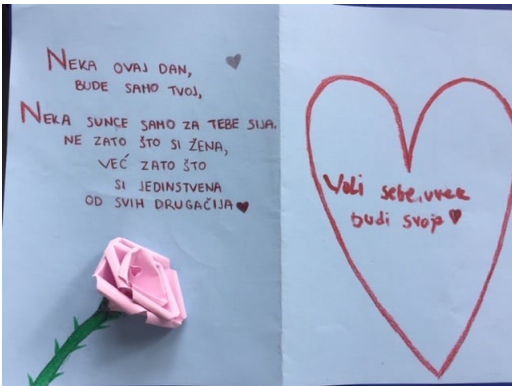 NEKA OVAJ DAN,
BUDE SAMO TVOJ,
NEKA SUNCE SAMO ZA TEBE SIJA.
NE ZATO ŠTO SI ŽENA,
VEĆ ZATO ŠTO
SI JEDINSTVENA
OD SVIH DRUGAČIJA
Voli sebe, uvek
budi svoja